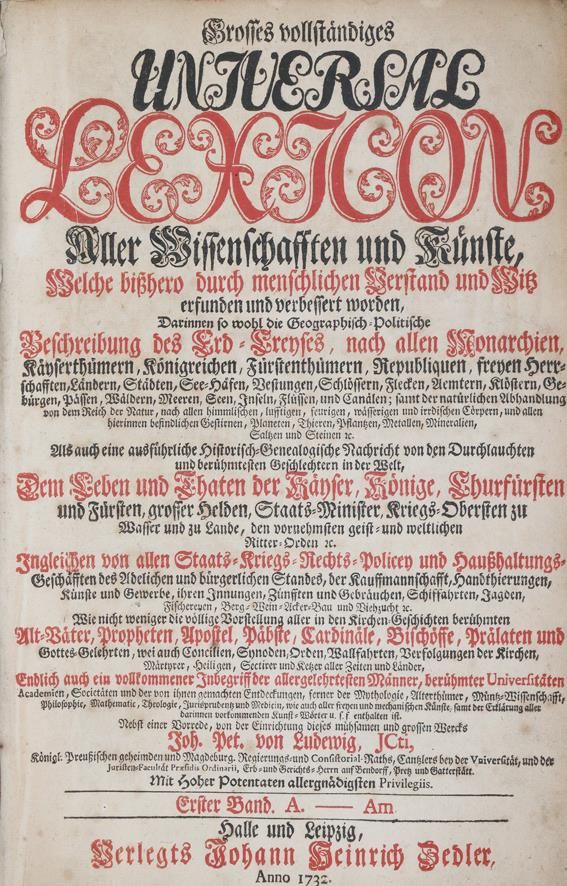 Grosses vollständiges
UNIVERSAL
LEXICON
Aller Wissenschafften und Künste,
Welche bißhero durch menschlichen Verstand und Witz
erfunden und verbessert worden,
Darinnen so wohl die Geographisch-Politische
Beschreibung des Erd-Creyses, nach allen Monarchien,
Käyserthümern, Königreichen, Fürstenthümern, Republiquen, freyen Herr-
schafften, Ländern, Städten, See-Häfen, Vestungen, Schlössern, Flecken, Aemtern, Klöstern, Ge-
bürgen, Pässen, Wäldern, Meeren, Seen, Inseln, Flüssen, und Canälen; samt der natürlichen Abhandlung
von dem Reich der Natur, nach allen himmlischen, lufftigen, feurigen, wässerigen und irrdischen Cörpern, und allen
hierinnen befindlichen Gestirnen, Planeten, Thieren, Pflantzen, Metallen, Mineralien,
Saltzen und Steinen ꝛc.
Als auch eine ausführliche Historisch-Genealogische Nachricht von den Durchlauchten
und berühmtesten Geschlechtern in der Welt,
Dem Leben und Thaten der Käyser, Könige, Churfürsten
und Fürsten, grosser Helden, Staats-Minister, Kriegs-Obersten zu
Wasser und zu Lande, den vornehmsten geist- und weltlichen
Ritter-Orden ꝛc.
Ingleichen von allen Staats-Kriegs-Rechts-Policey und Haußhaltungs-
Geschäfften des Adelichen und bürgerlichen Standes, der Kauffmannschafft, Handthierungen,
Künste und Gewerbe, ihren Innungen, Zünfften und Gebräuchen, Schiffahrten, Jagden,
Fischereyen, Berg-Wein-Acker-Bau und Viehzucht ꝛc.
Wie nicht weniger die völlige Vorstellung aller in den Kirchen-Geschichten berühmten
Alt-Väter, Propheten, Apostel, Päbste, Cardinäle, Bischöffe, Prälaten und
Gottes-Gelehrten, wie auch Concilien, Synoden, Orden, Wallfahrten, Verfolgungen der Kirchen,
Märtyrer, Heiligen, Sectirer und Ketzer aller Zeiten und Länder,
Endlich auch ein vollkommener Inbegriff der allergelehrtesten Männer, berühmter Universitäten
Academien, Societäten und der von ihnen gemachten Entdeckungen, ferner der Mythologie, Alterthümer, Müntz-Wissenschafft,
Philosophie, Mathematic, Theologie, Jurisprudentz und Medicin, wie auch aller freyen und mechanischen Künste, samt der Erklärung aller
darinnen vorkommenden Kunst-Wörter u. s. f. enthalten ist.
Nebst einer Vorrede, von der Einrichtung dieses mühsamen und grossen Wercks
Joh. Pet. von Ludewig, JCti,
Königl. Preußischen geheimden und Magdeburg. Regierungs- und Consistorial-Raths, Cantzlers bey der Vniversität, und der
Juristen-Facultät Præsidis Ordinarii, Erb- und Gerichts-Herrn auf Bendorff, Pretz und Gatterstätt.
Mit Hoher Potentaten allergnädigsten Privilegiis.
Erster Band. A. — Am
Halle und Leipzig,
Verlegts Johann Heinrich Zedler,
Anno 1732.